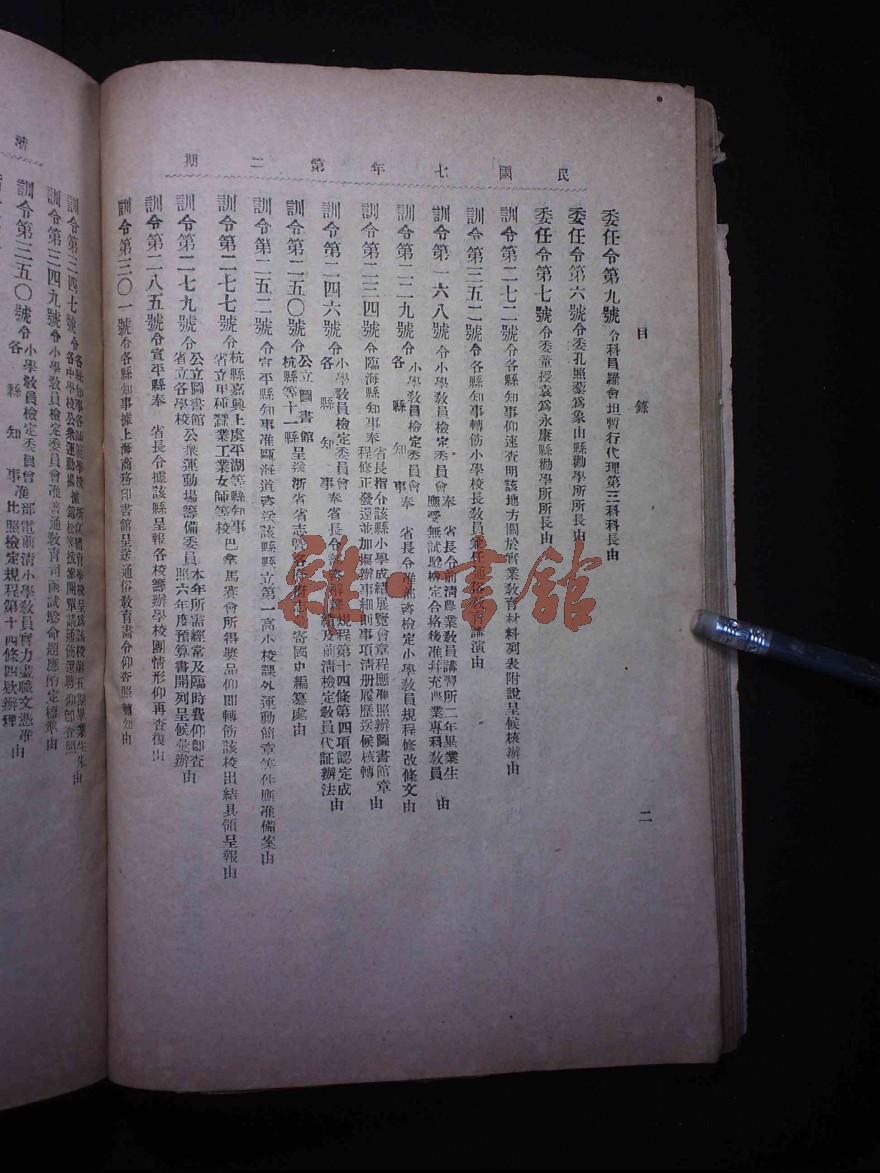 民國七年第二期
目錄
二
委任令第九號令科員羅會坦暫行代理第三科科長由
委任令第六號令委孔照藜爲象山縣勸學所所長由
委任令第七號令委董授袁爲永康縣勸學所所長由
訓令第二七二號令各縣知事仰速查明該地方關於實業教育材料列表附說呈候核辦由
訓令第三五二號令各縣知事轉飭小學校長教員兼任通俗教育講演由
訓令第一六八號令小學教員檢定委員會奉 省長令前清農業教員講習所二年畢業生
應受無試驗檢定合格後准幷充農業專科教員由
訓令第二二九號令小學教員檢定委員會
各縣知事奉 省長令准部咨檢定小學教員規程修改條文由
訓令第二三四號令臨海縣知事奉 省長指令該縣小學成績展覽會章程應准照辦圖書館章
程修正發還並加擬辦事細則事項清册履歷送候核轉由
訓令第二四六號令小學教員檢定委員會
各縣知事奉省長令 規程第十四條第四項認定成
績及前清檢定教員代証辦法由
訓令第二五〇號令公立圖書館
杭縣等十一縣呈送浙省省志 寄國史編纂處由
訓令第二五二號令宣平縣知事准甌海道咨送該縣縣立第一高小校課外運動簡章等件應准備案由
訓令第二七七號令杭縣嘉興上虞平湖等縣知事
省立甲種蠶業工業女師等校巴拿馬賽會所得獎品仰卽轉飭該校出結具領呈報由
訓令第二七九號令公立圖書館公衆運動場籌備委員
省立各學校本年所需經常及臨時費仰卽查
照六年度預算書開列呈候彙辦由
訓令第二八五號令宣平縣奉 省長令據該縣呈報各校籌辦學校團情形仰再查復由
訓令第三〇一號令各縣知事據上海商務印書館呈送通俗教育畫令仰查照轉知由
訓令第三四七號令各縣知事各師範學校
各中學校公衆運動場
訓令第三四九號令小學教員檢定委員會准普通教育司函試驗命題應酌定標準由
訓令第三五〇號令小學教員檢定委員會准部電前清小學教員實力盡職文憑准由
各縣知事比照檢定規程第十四條四欵辦理
雜·書館